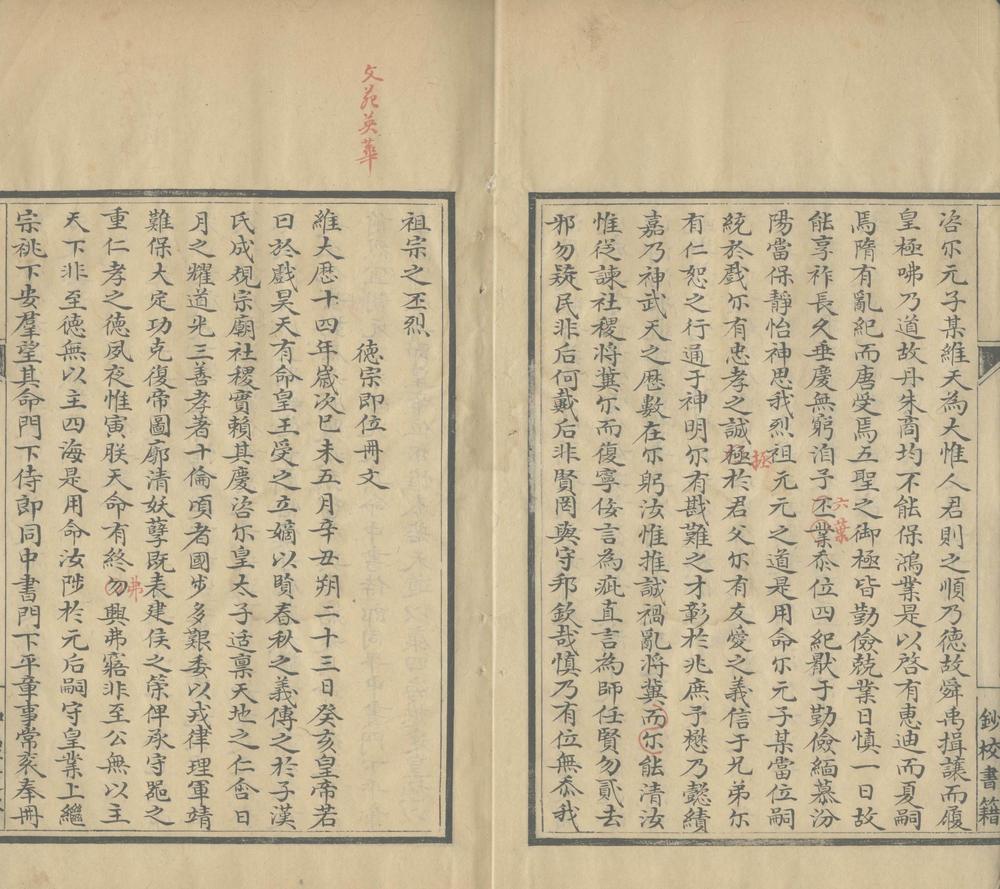 咨尓元子某維天為大惟人君則之順乃徳故舜禹揖讓而履
皇極咈乃道故丹朱商均不能保鴻業是以啓有恵迪而夏嗣
焉隋有亂紀而唐受焉五聖之御極皆勤儉兢業日慎一日故
能享祚長久垂慶無窮洎予丕業忝位四紀厭于勤儉緬慕汾
六葉
陽當保靜怡神思我烈祖元元之道是用命尓元子某當位嗣
統於戲尓有忠孝之誠極於君父尓有友愛之義信于兄弟尓
拯
有仁恕之行通于神明尓有戡難之才彰於兆庶予懋乃懿績
嘉乃神武天之厯數在尓躬汝惟推誠禍亂將冀而尓能清汝
惟從諫社稷將冀尓而復寧佞言為疵直言為師任賢勿貳去
邪勿疑民非后何戴后非賢罔與守邦欽哉慎乃有位無忝我
鈔校書籍
文苑英華
祖宗之丕烈
徳宗即位冊文
維大厯十四年嵗次巳未五月辛丑朔二十三日癸亥皇帝若
曰於戲昊天有命皇王受之立嫡以賢春秋之義傳之於子漢
氏成規宗廟社稷實賴其慶咨尓皇太子适禀天地之仁含日
月之耀道光三善孝著十倫頃者國步多艱委以戎律理軍靖
難保大定功克復帝圖廓清妖孽既表建侯之榮俾承守噐之
重仁孝之徳夙夜惟寅朕天命有終勿興弗寤非至公無以主
弗
天下非至徳無以主四海是用命汝陟於元后嗣守皇業上繼
宗祧下安羣望其命門下侍郎同中書門下平章事常衮奉冊